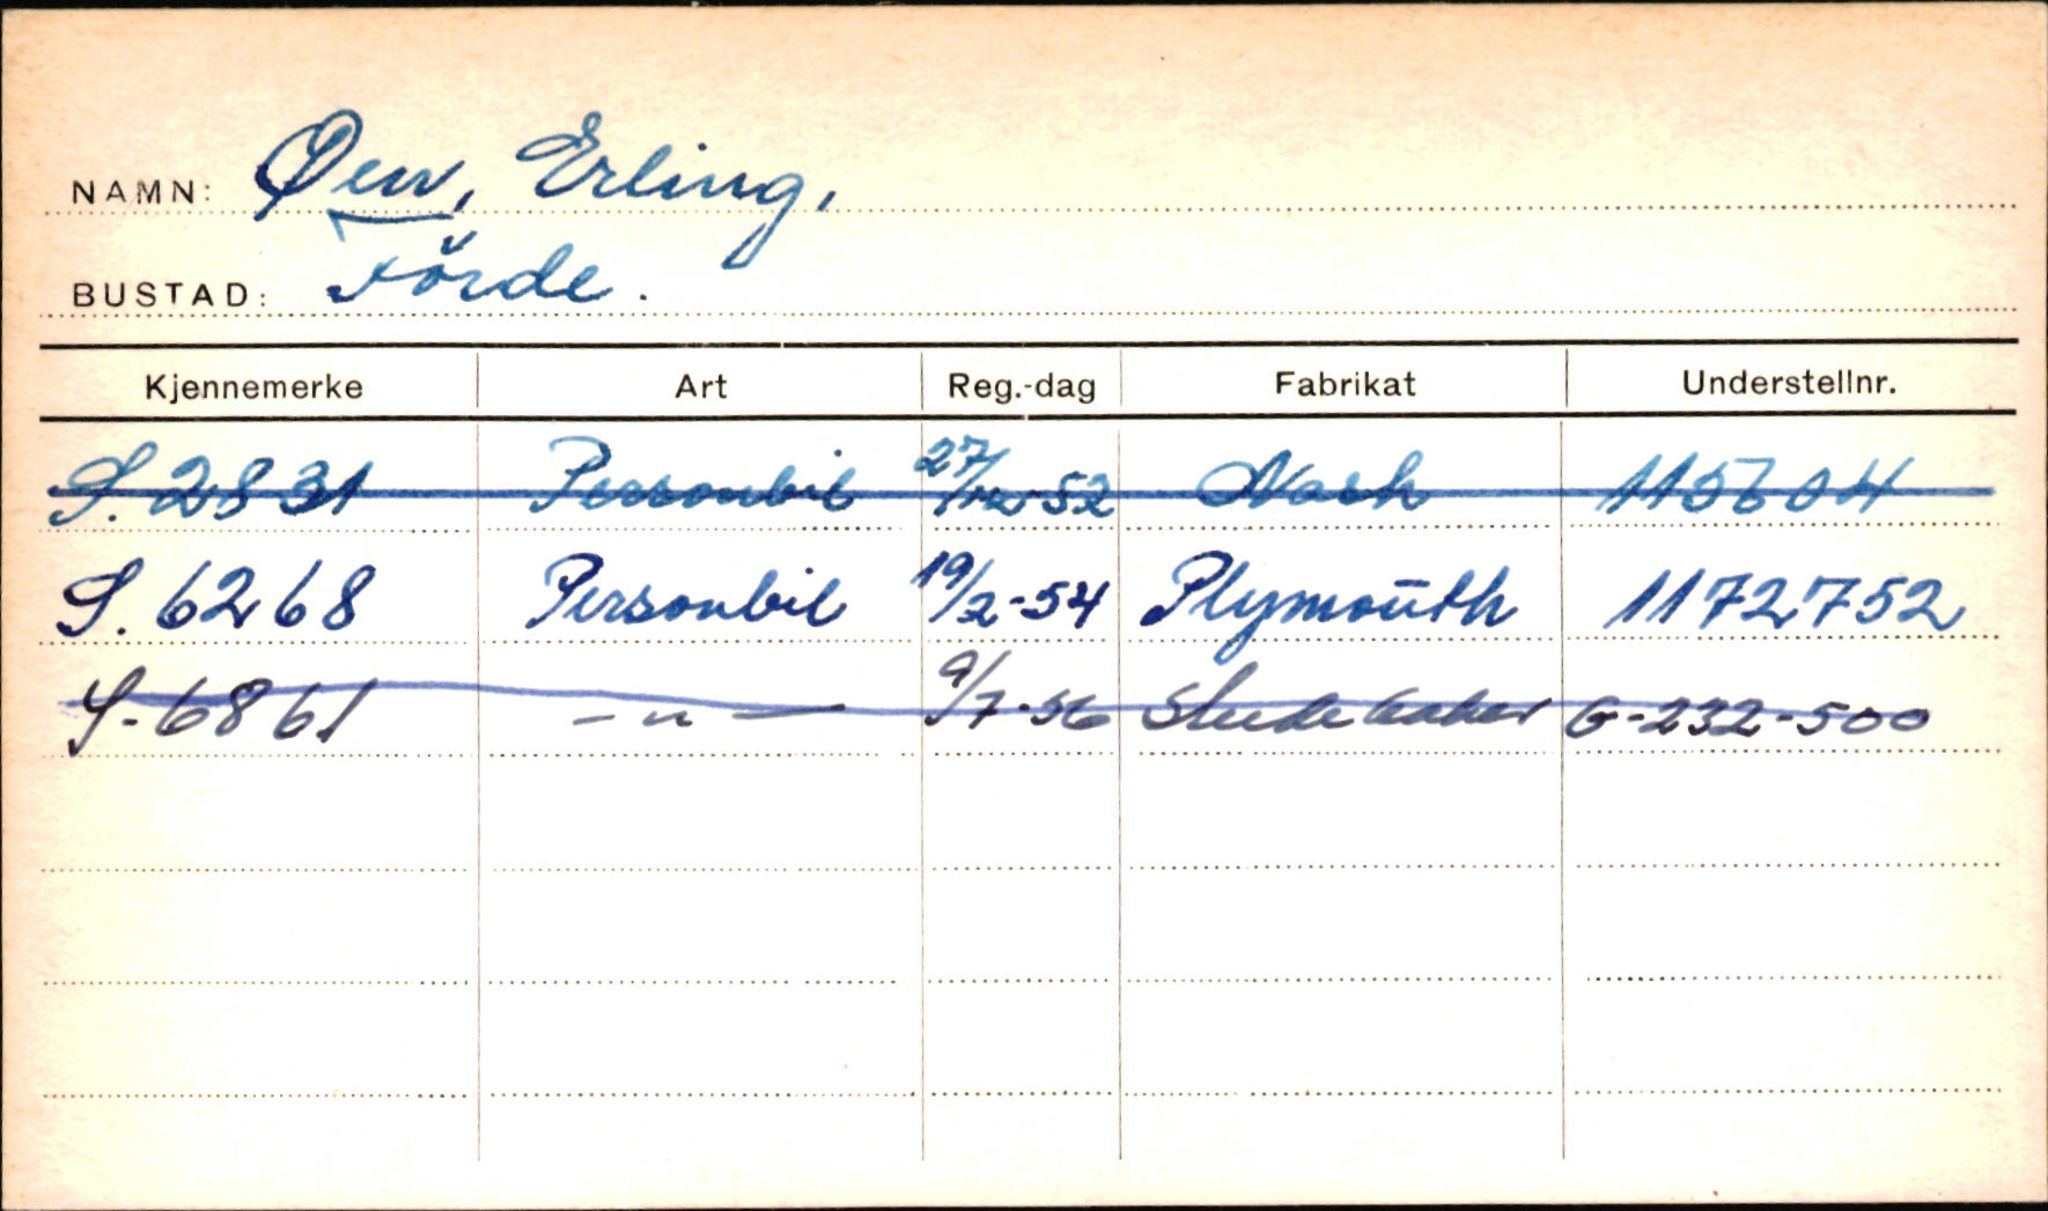 NAMN: Øen, Erling.
BUSTAD: Förde.
Kjennemerke Art Reg.-dag Fabrikat Understellnr.
S. 2831 Personbil 27/12-52 Nash 115604
S. 6268 Personbil 19/2-54 Plymouth 11727752
S-6861 -"- 9/7-56 Studebaker G-232-500